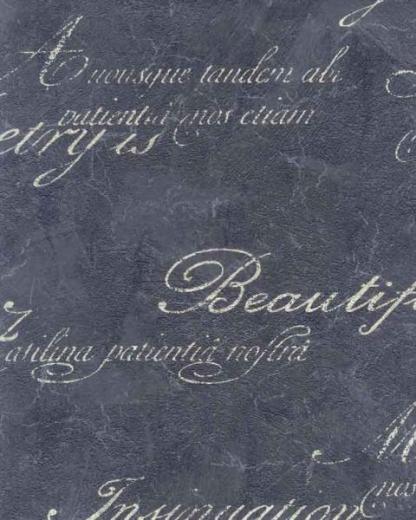 Auousque tandem abi
patientia mos etiam
etry is
Beautif
atilina patientia nostra
nos
Insinuation